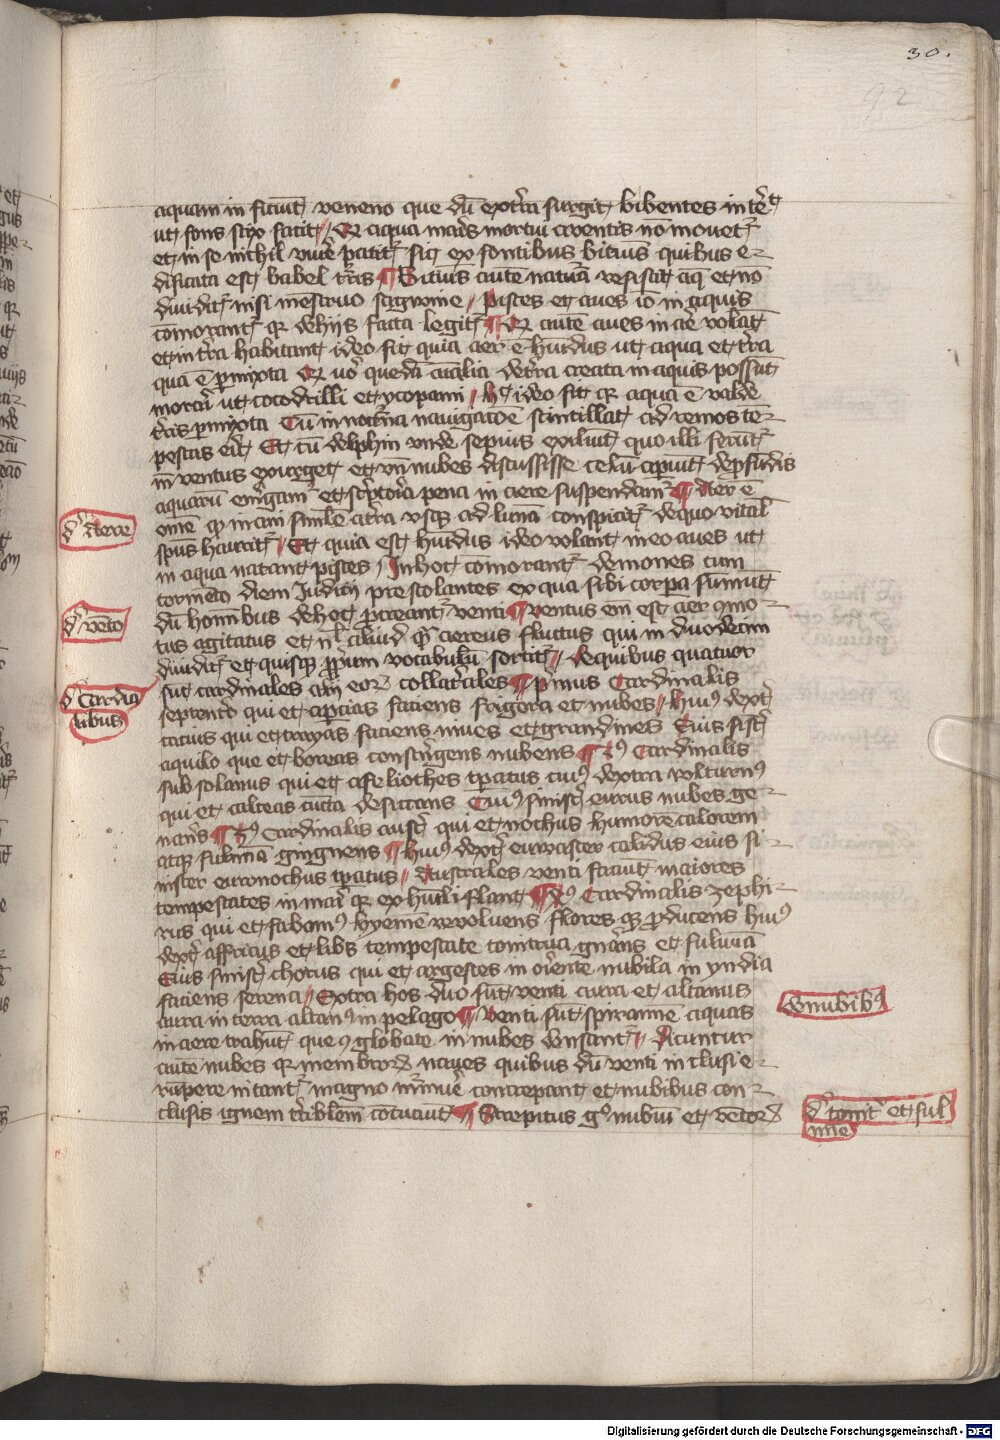 30.
92
aquam in ficiūt veneno que dū extᵃ surgit bibentes intᵉ⁊
ut fons stix facit // Qꝫ aqua maris mortui viventis nō movetᷣ
et in se nichil vivē patitᷣ sic ex fontibus bitumīs quibus e-
dificata est babel turris ¶ Bitumīs autē naturā resistit aqᵉ et nō
dividitᷣ nisi menstruo sagwine // Pisces et aves iō in aquis
cōmorantᷣ qꝛ de hijs facta legitᷣ ¶ Qꝫ autē aves in aere volāt
et in terra habitant ideo fit quia aer ē humidus ut aqua et terra
qua ē pmixta Qꝫ vō quedā aīalia de terra creata in aquis possūt
morari ut cocodrilli et ypotami // hoc ideo fit qꝛ aqua ē valde
terris pmixta Cū in nocturna navigacōe scintillat ad remos tē-
pestas erit Et cū delphin unde sepius exiliūt quo illi ferūtᷣ
in ventus exurget et un nubes discussisse celū apiūt de pfūdis
aquarū
¶ Aer ē
omē qd inani simile a terra usqꝫ ad lunā conspicitᷣ de quo vitalis
spūs hauritᷣ // Et quia est humidus ideo volant in eo aves ut
in aqua natant pisces / In hoc cōmorantᷣ demones cum
tormēto diem Judicij prestolantes ex qua sibi corpora sumūt
dū hominibus de hoc pcreantᷣ venti ¶ ventus eni est aer qmo-
tus agitatus et nl aliud qᵃ aereus fluctus qui in duodecim
dividitᷣ et quisqꝫ propriū vocabulū sortitᷣ // de quibus quatuor
sūt cardinales alij eoꝝ collatᵃles ¶ primus Cardinalis
septentrio qui et aparcias faciens frigora et nubes // huiꝰ dextᵉ
circius qui et trayas faciens nives et grandines Eius sinistᵉ
aquilo que et boreas constringens nubens ¶ 2ꝰ Cardinalis
sub solanus qui et afeliothes tpatus cuiꝰ dextra volturnꝰ
qui et calteas cūcta desiccans Cuiꝰ sinistᵉ eurus nubes ge-
nerās ¶ 3ꝰ Cardinalis austᵉ qui et nothus humore calorem
atqꝫ fulmina gingnens ¶ huiꝰ dextᵉ euroauster calidus eius si-
nister euronothus tpatus // Australes venti faciūt maiores
tempestates in mari qꝛ ex humili flant ¶ 4ꝰ Cardinalis zephi-
rus qui et fabonꝰ hyemē revolvens flores qꝫ pducens huiꝰ
dextᵉ affricus et libs tempestate tonitrua gnans et fulmina
Eius sinistᵉ chorus qui et argestes in oriente nubila in yndia
faciens serena // Extra hos duo sūt venti aura et altanus
aura in terra altanꝰ in pelago ¶ Venti sūt spiramine aquas
in aere trahūt que ꝯglobate in nubes densantᷣ // Dicuntur
autē nubes qꝛ nimbroꝝ naves quibus dū venti in clusi e-
rumpere nitantᷣ magno murmure concrepant et nubibus con-
clusis ignem terribilem cōcuciūt ¶ Strepitus gꝰ nubiū et vētoꝝ
dᵉ Aere
dᵉ vēto
dᵉ Cardia
libus
de nubibꝰ
dᵉ tonitᵘ et ful
mīe
Digitalisierung gefördert durch die Deutsche Forschungsgemeinschaft - DFG